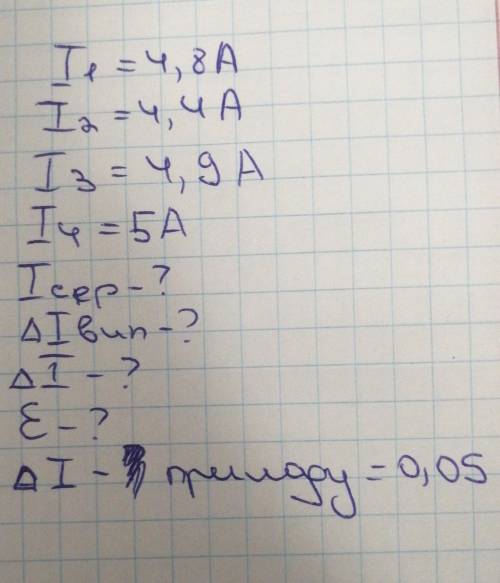 I₁ = 4,8A
I₂ = 4,4A
I₃ = 4,9A
I₄ = 5A
Iсер - ?
ΔIвип - ?
ΔI - ?
ε - ?
ΔI - приладу = 0,05